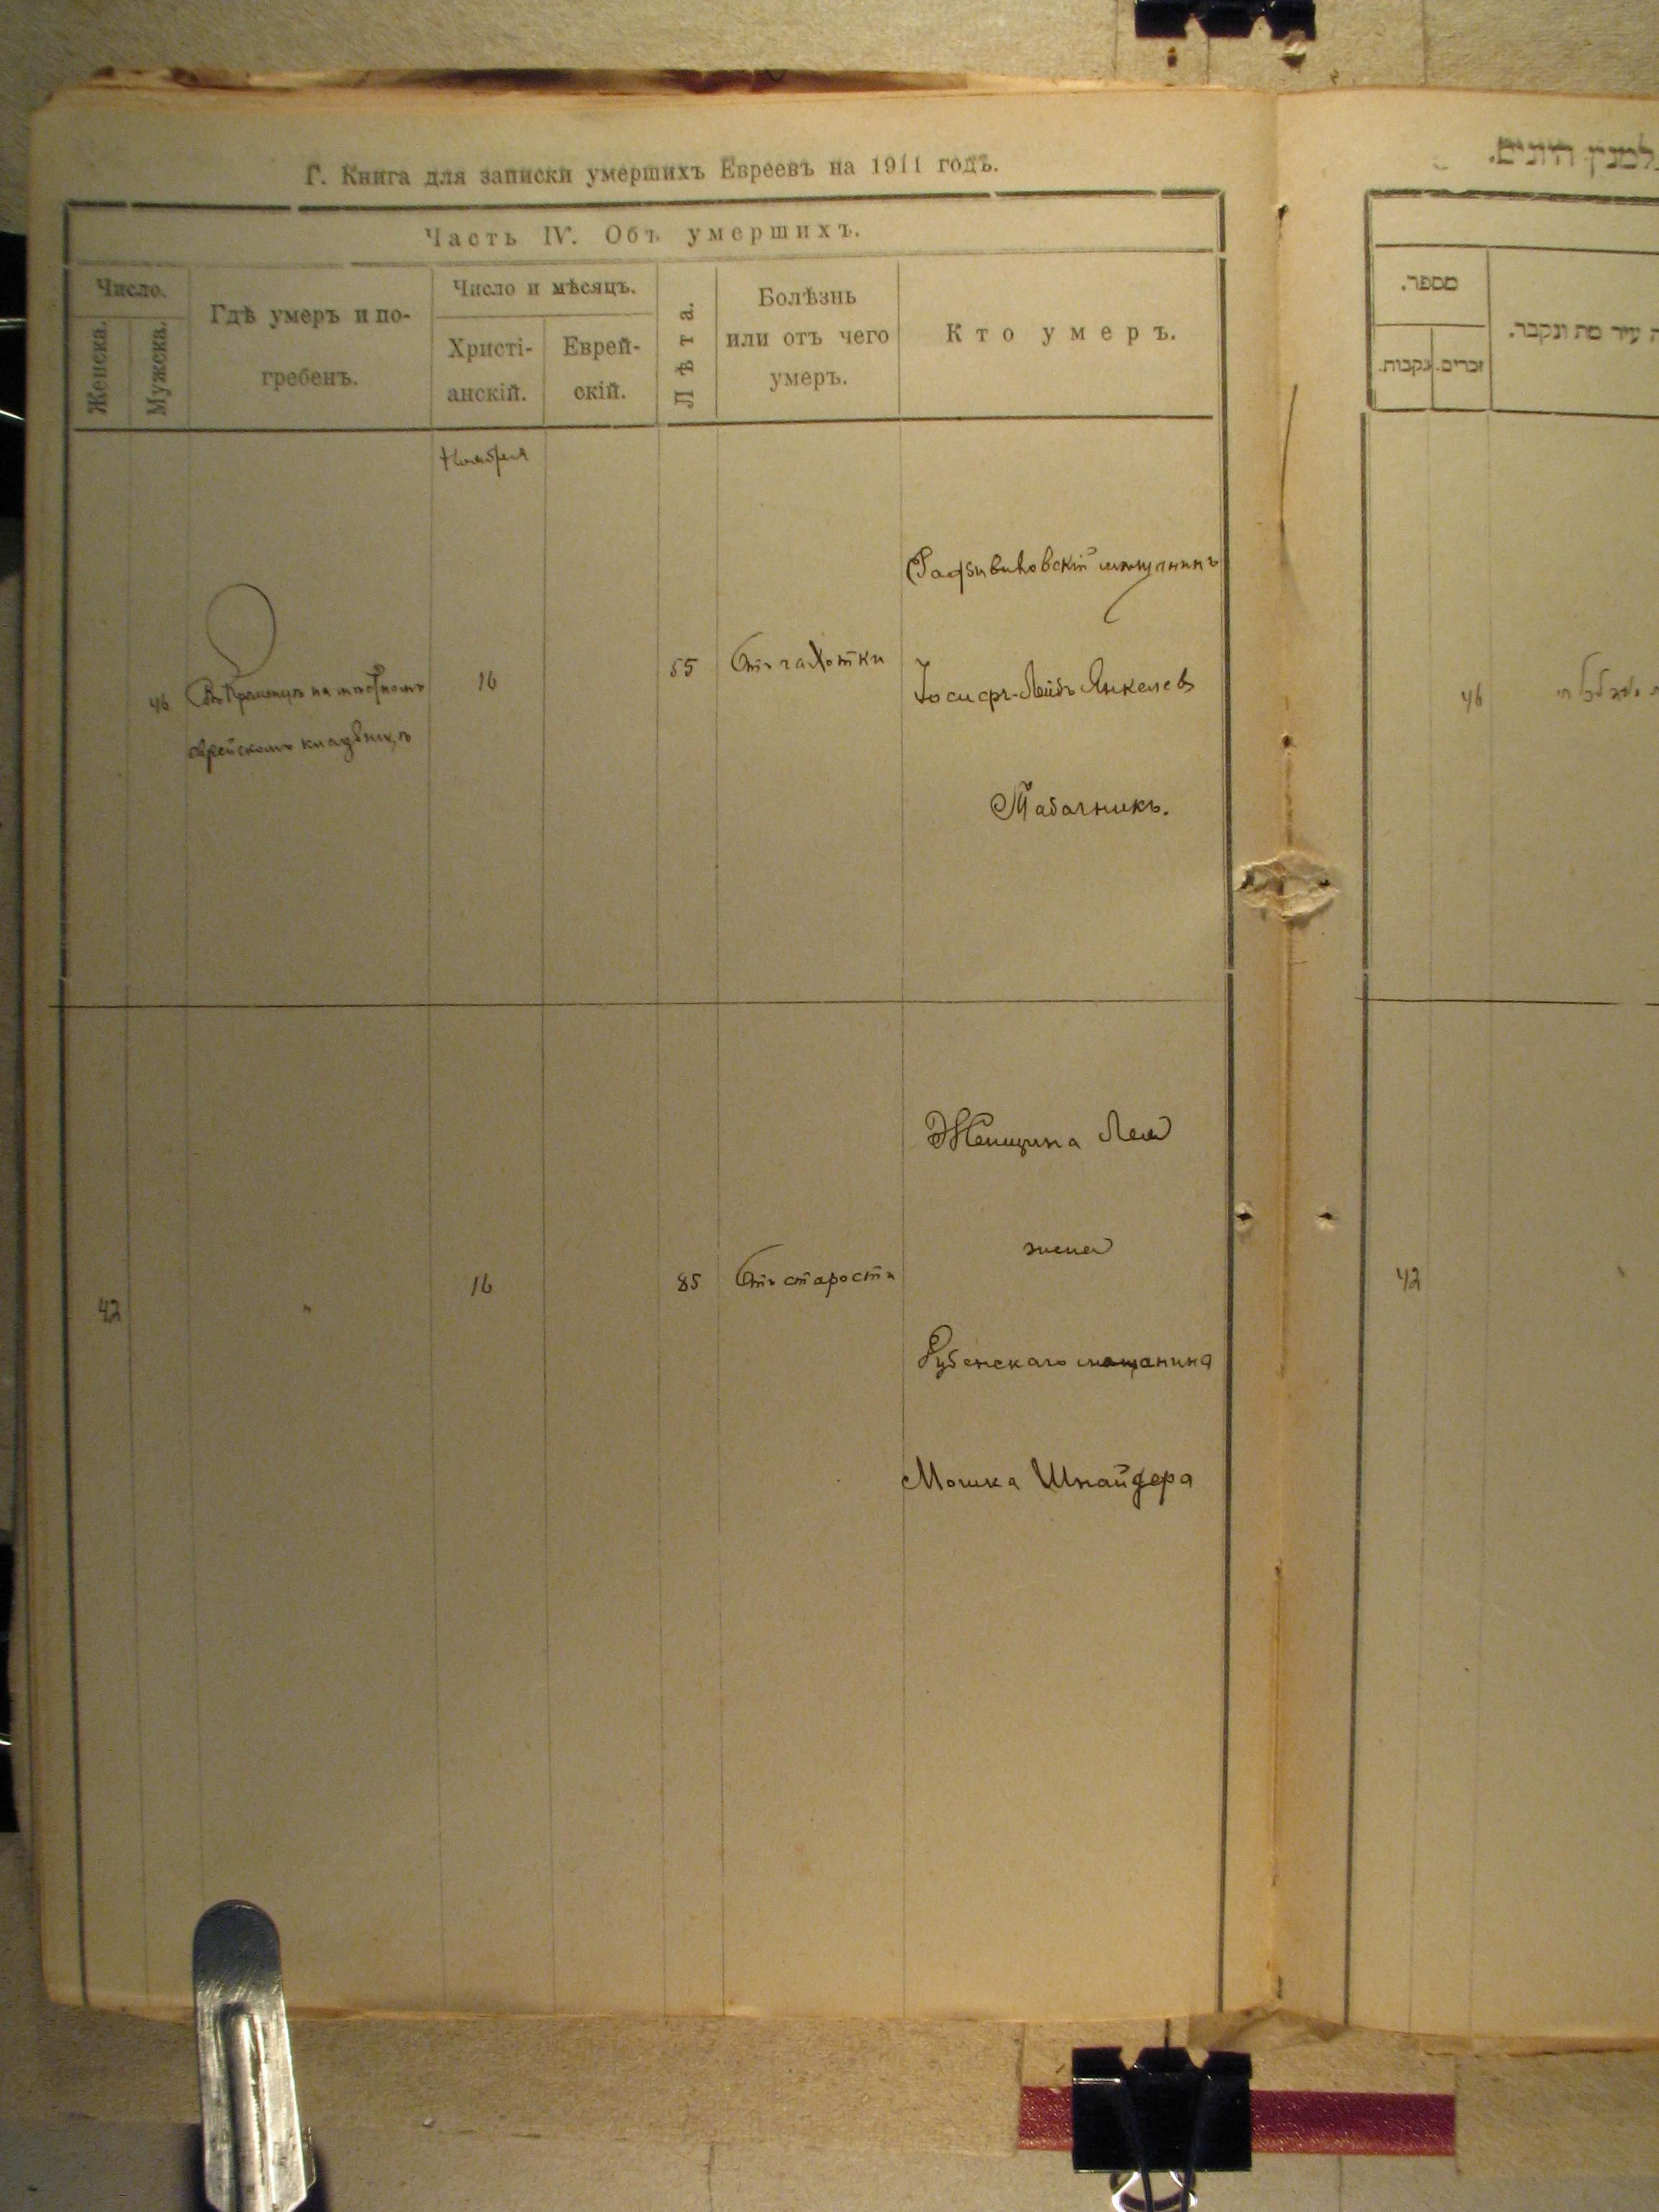 Г. Книга для записки умершихъ Евреевъ на 1911 годъ.
Часть IV. Объ умершихъ.
Число.
Женска.
Мужска.
Гдѣ умеръ и по-
гребенъ.
Число и мѣсяцъ.
Христі-
анскій.
Еврей-
скій.
Лѣта.
Болѣзнь
или отъ чего
умеръ.
Кто умеръ.
Ноября
46
Въ Кременцѣ на мѣстномъ
еврейскомъ кладбищѣ
16
55
Отъ чахотки
Радзивиловскій мѣщанинъ
Іосифъ-Лейбъ Янкелев
Табачникъ.
42
"
16
85
Отъ старости
Женщина Лея
жена
Дубенскаго мѣщанина
Мошка Шнайдера
מספר.
זכרים.
נקבות.
עיר מת ונקבר.
46
42